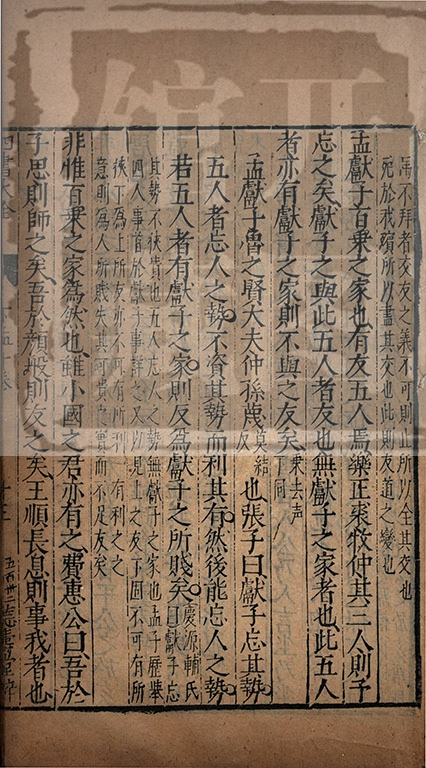 弔不拜者交友之義不可則止所以全其交也
死於我殯所以盡其交也此則友道之變也
孟獻子百乘之家也有友五人焉樂正裘牧仲其三人則予
忘之矣獻子之與此五人者友也無獻子之家者也此五人
者亦有獻子之家則不與之友矣乘去聲下同
孟獻子魯之賢大夫仲孫蔑莫結反也張子曰獻子忘其勢
五人者忘人之勢不資其勢而利其有然後能忘人之勢
若五人者有獻子之家則反為獻子之所賤矣慶源輔氏曰獻子忘
其勢不挾貴也五人忘人之勢無獻子之家也孟子歷舉
四人事首於獻子事詳之又以見上之友下固不可有所
挾下為上所友亦不可有所利一有利之之
意則為人所賤失其可貴之實而不足友矣
非惟百乘之家為然也雖小國之君亦有之費惠公曰吾於
子思則師之矣吾於顏般則友之矣王順長息則事我者也
四書大全